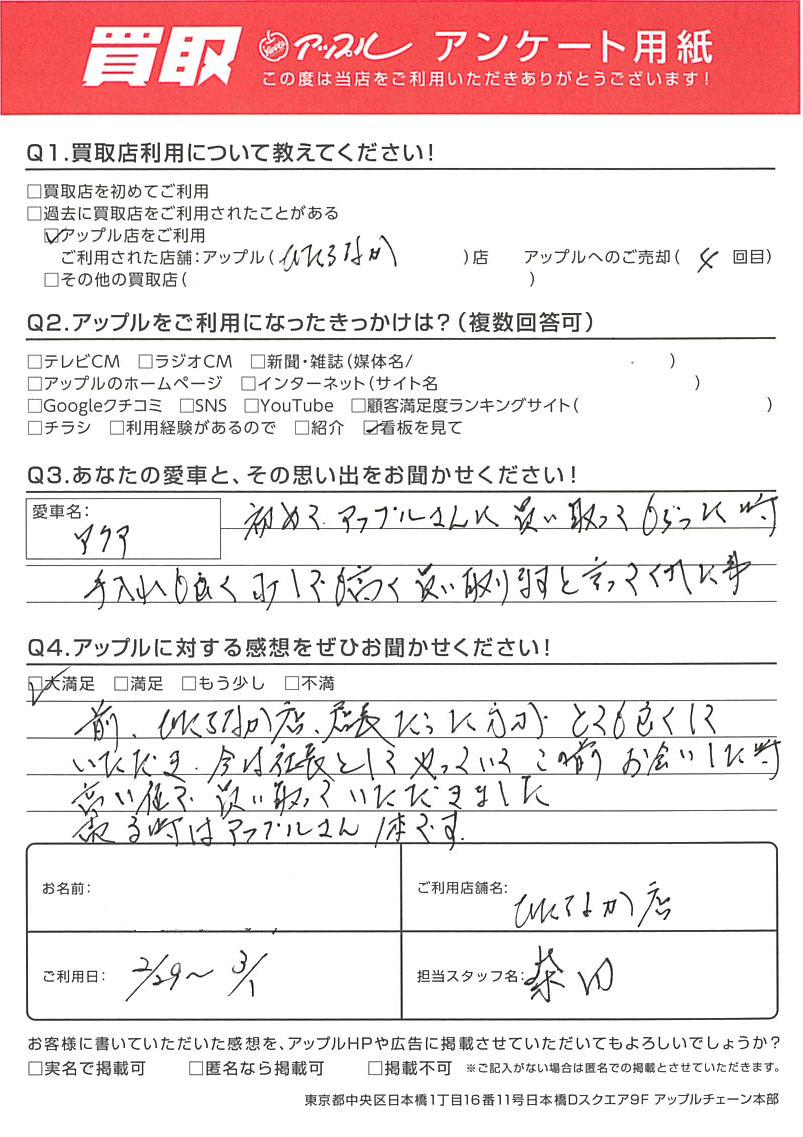 買取 アップル アンケート用紙
この度は当店をご利用いただきありがとうございます！
Q1.買取店利用について教えてください！
□買取店を初めてご利用
□過去に買取店をご利用されたことがある
☑アップル店をご利用
ご利用された店舗：アップル（ひたちなか）店 アップルへのご売却（4回目）
□その他の買取店（ ）
Q2.アップルをご利用になったきっかけは？（複数回答可）
□テレビCM □ラジオCM □新聞・雑誌（媒体名/ ）
□アップルのホームページ □インターネット（サイト名 ）
□Googleクチコミ □SNS □YouTube □顧客満足度ランキングサイト（ ）
□チラシ □利用経験があるので □紹介 ☑看板を見て
Q3.あなたの愛車と、その思い出をお聞かせください！
愛車名：
アクア
初めて アップルさんに 買い取ってもらった時
手入れも良く 少しでも高く 買い取りますと言ってくれた事
Q4.アップルに対する感想をぜひお聞かせください！
☑大満足 □満足 □もう少し □不満
前、ひたちなか店、店長だった方が とても良くして
いただき、今は社長としてやっていて この前 お会いした時
高い値で 買い取っていただきました
売る時はアップルさん1本です。
お名前：
ご利用店舗名：ひたちなか店
ご利用日：2/29〜3/1
担当スタッフ名：
お客様に書いていただいた感想を、アップルHPや広告に掲載させていただいてもよろしいでしょうか？
□実名で掲載可 □匿名なら掲載可 □掲載不可 ※ご記入がない場合は匿名での掲載とさせていただきます。
東京都中央区日本橋1丁目16番11号日本橋Dスクエア9F アップルチェーン本部